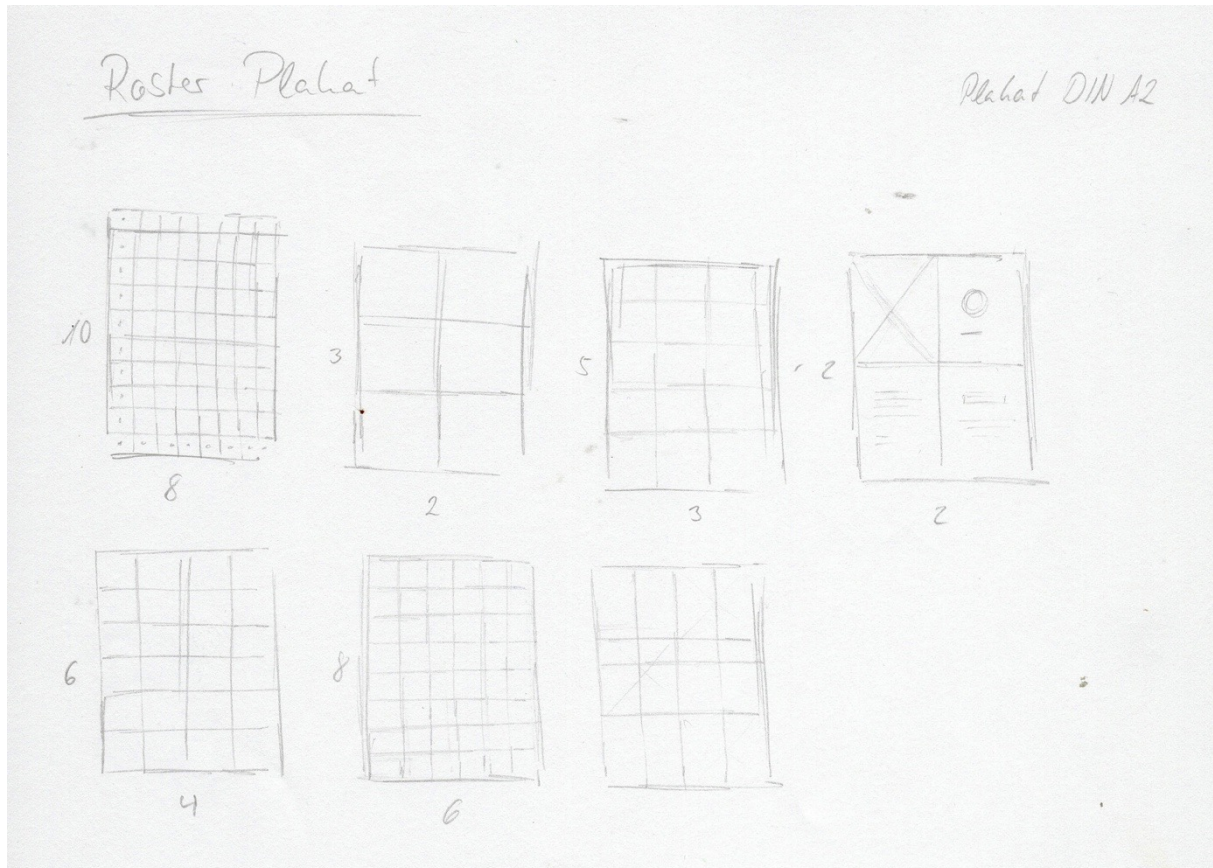 Raster Plakat
Plakat DIN A2
10
8
3
2
5
3
2
2
6
4
8
6